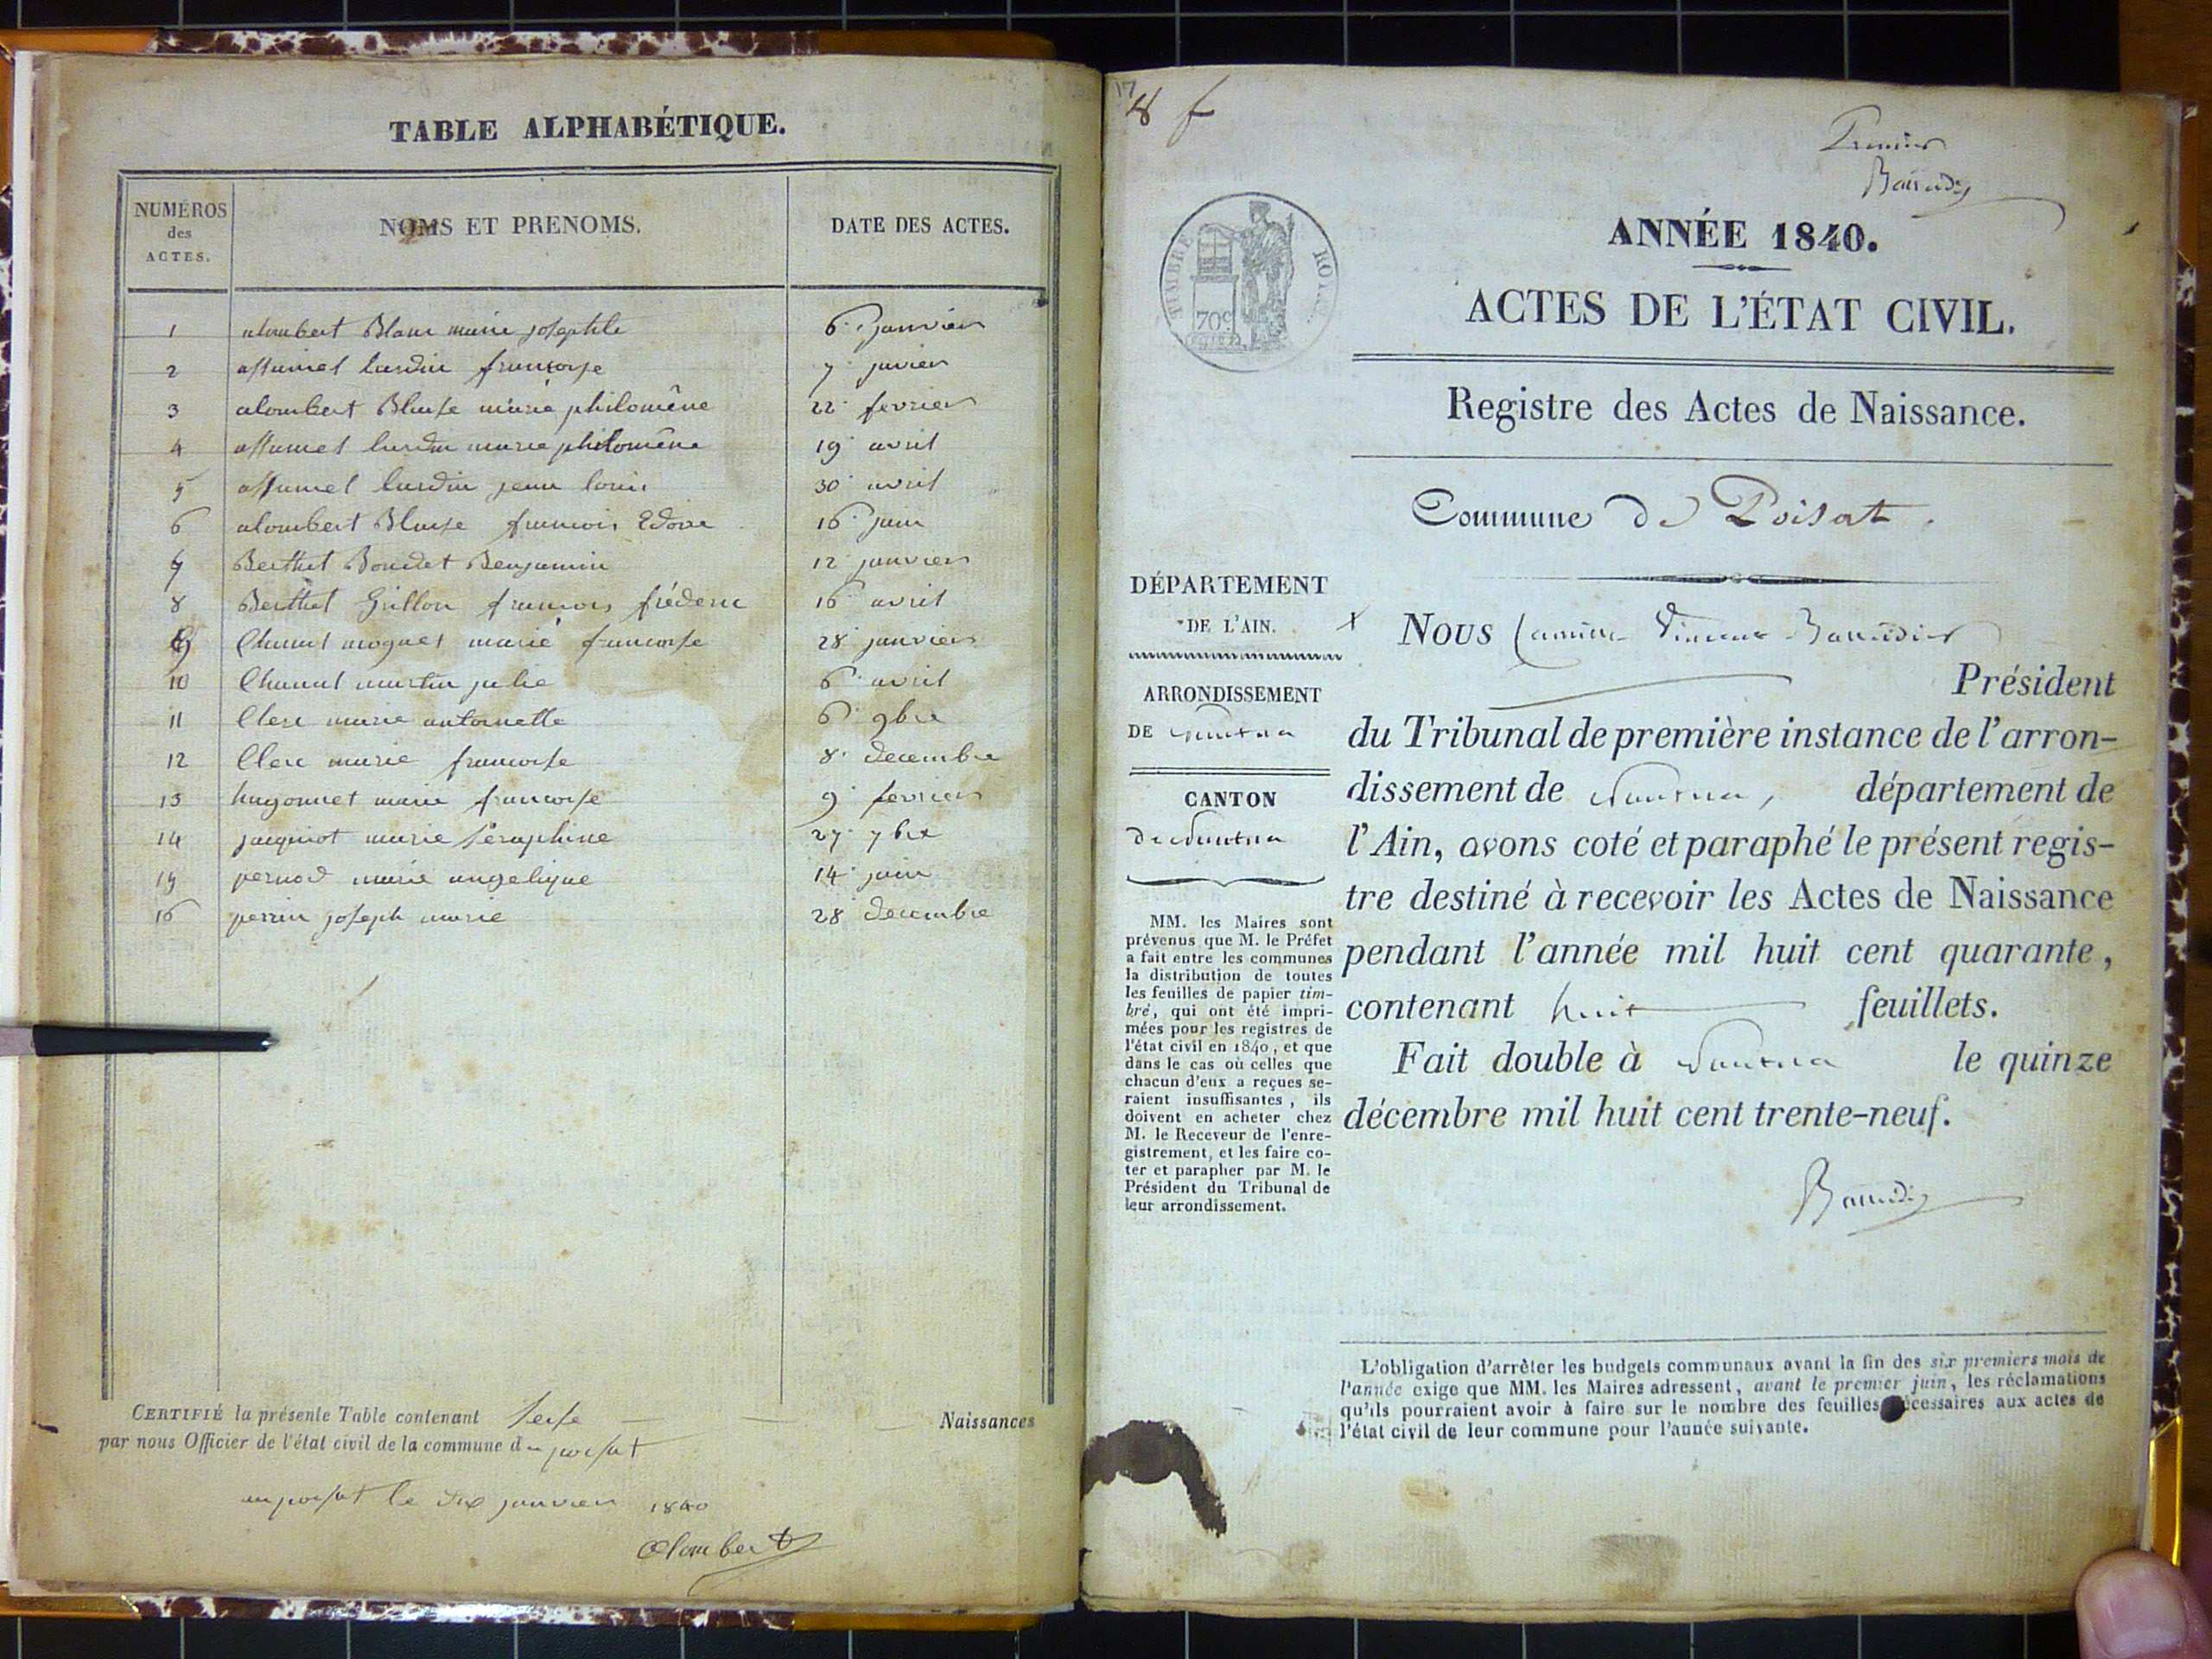 TABLE ALPHABÉTIQUE.
NUMÉROS des ACTES.
NOMS ET PRENOMS.
DATE DES ACTES.
1 alombert Blanc marie josephte 6 janvier
2 assumel lurdin francoise 7 janvier
3 alombert Blaise marie philomène 22 fevrier
4 assumel lurdin marie philomène 19 avril
5 assumel lurdin jean louis 30 avril
6 alombert Blaise francois 16 juin
7 Berthet Bondet Benjamin 12 janvier
8 Berthet Grillon francois fréderic 16 avril
9 Chanel moguet marie francoise 28 janvier
10 Chanal martin julie 6 avril
11 Clerc marie antoinette 6 9bre
12 Clerc marie francoise 8 decembre
13 hugonnet marie francoise 9 fevrier
14 jacquiot marie séraphine 27 7bre
15 pernod marie angelique 14 juin
16 perrin joseph marie 28 decembre
CERTIFIÉ la présente Table contenant seise Naissances
par nous Officier de l'état civil de la commune de poisat
au poisat le dix janvier 1840
Alombert
17
8 f
Premier
Baudin
TIMBRE ROYAL
70c
ANNÉE 1840.
ACTES DE L'ÉTAT CIVIL.
Registre des Actes de Naissance.
Commune de Poisat.
DÉPARTEMENT
DE L'AIN.
ARRONDISSEMENT
DE Nantua
CANTON
de Nantua
MM. les Maires sont
prévenus que M. le Préfet
a fait entre les communes
la distribution de toutes
les feuilles de papier tim-
bré, qui ont été impri-
mées pour les registres de
l'état civil en 1840, et que
dans le cas où celles que
chacun d'eux a reçues se-
raient insuffisantes, ils
doivent en acheter chez
M. le Receveur de l'enre-
gistrement, et les faire co-
ter et parapher par M. le
Président du Tribunal de
leur arrondissement.
Nous Camille Vincent
Président
du Tribunal de première instance de l'arron-
dissement de Nantua, département de
l'Ain, avons coté et paraphé le présent regis-
tre destiné à recevoir les Actes de Naissance
pendant l'année mil huit cent quarante,
contenant huit feuillets.
Fait double à Nantua le quinze
décembre mil huit cent trente-neuf.
L'obligation d'arrêter les budgets communaux avant la fin des six premiers mois de
l'année exige que MM. les Maires adressent, avant le premier juin, les réclamations
qu'ils pourraient avoir à faire sur le nombre des feuilles nécessaires aux actes de
l'état civil de leur commune pour l'année suivante.